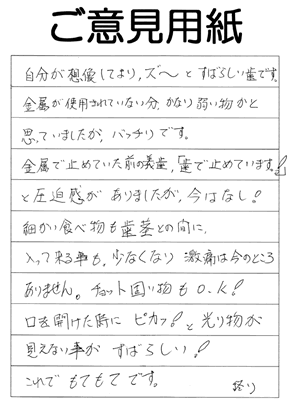 ご意見用紙
自分が想像してより、ズ〜とすばらしい歯です。
金属が使用されていない分、かなり弱い物かと
思っていましたが、バッチリです。
金属で止めていた前の義歯、「歯で止めています。!」
と圧迫感がありましたが、今はなし!
細かい食べ物も歯茎との間に、
入って来る事も、少なくなり 激痛は今のところ
ありません。チョット固い物もO.K!
口を開けた時に ピカッ!と光り物が
見えない事が すばらしい!
これで もてもてです。